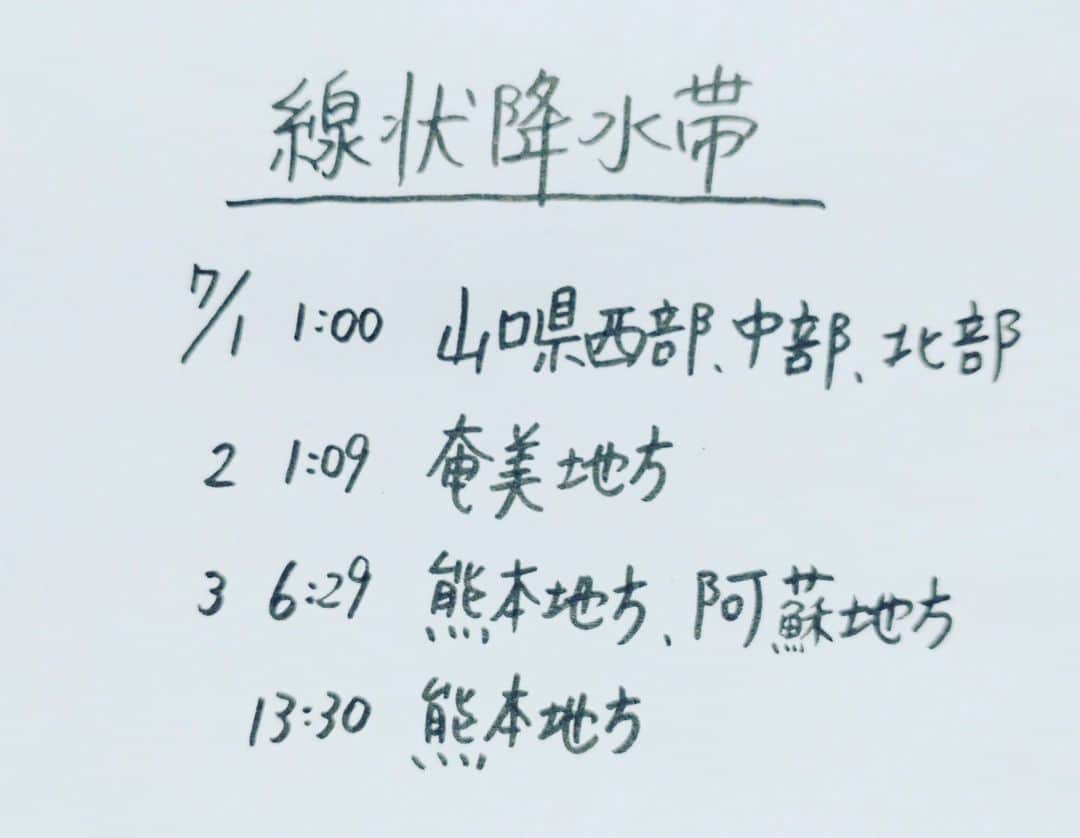 線状降水帯
7/1 1:00 山口県西部、中部、北部
2 1:09 奄美地方
3 6:29 熊本地方、阿蘇地方
13:30 熊本地方